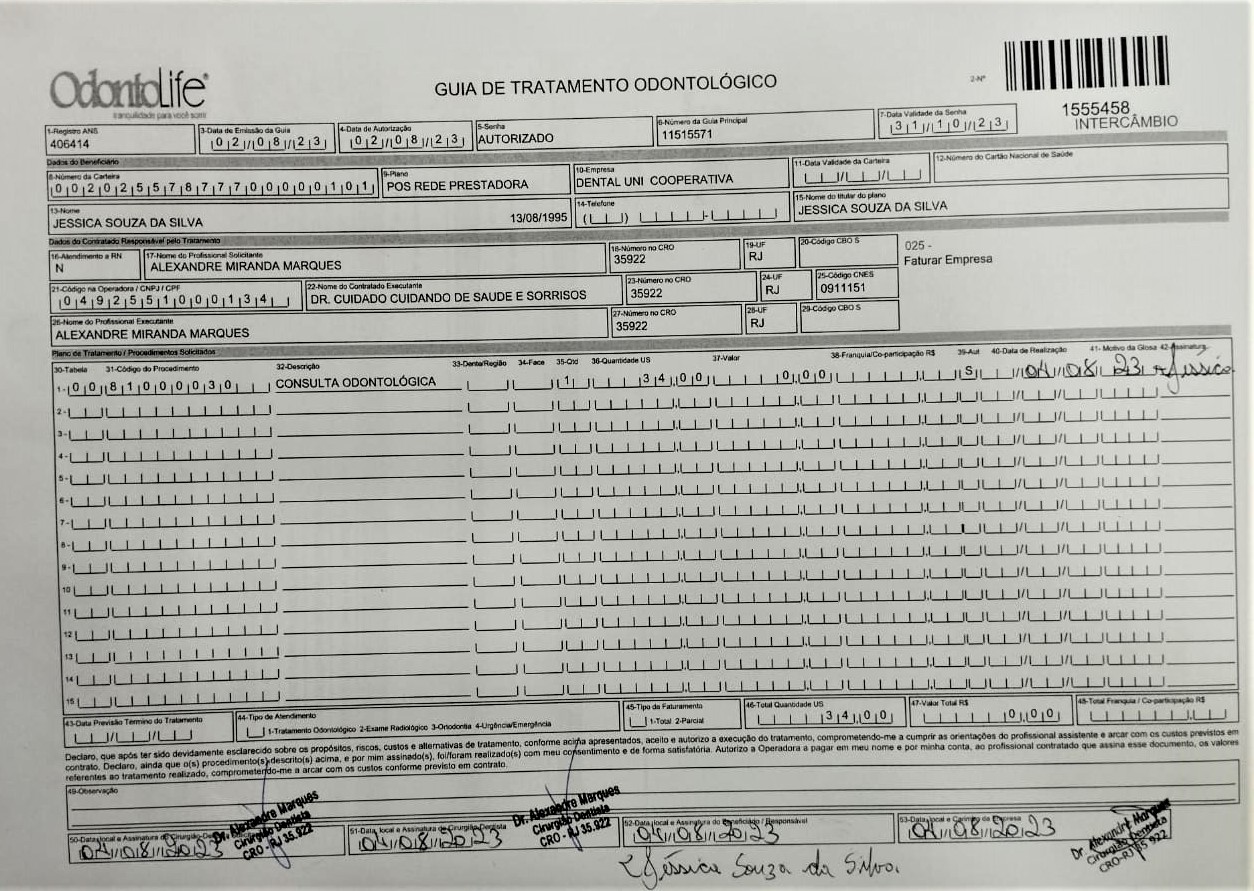 OdontoLife®
tranquilidade para você sorrir
GUIA DE TRATAMENTO ODONTOLÓGICO
2-Nº
1555458
INTERCÂMBIO
1-Registro ANS
406414
3-Data de Emissão da Guia
02/08/23
4-Data de Autorização
02/08/23
5-Senha
AUTORIZADO
6-Número da Guia Principal
11515571
7-Data Validade da Senha
31/10/23
Dados do Beneficiário
8-Número da Carteira
00202557877700000101
9-Plano
POS REDE PRESTADORA
10-Empresa
DENTAL UNI COOPERATIVA
11-Data Validade da Carteira
12-Número do Cartão Nacional de Saúde
13-Nome
JESSICA SOUZA DA SILVA 13/08/1995
14-Telefone
15-Nome do titular do plano
JESSICA SOUZA DA SILVA
Dados do Contratado Responsável pelo Tratamento
16-Atendimento a RN
N
17-Nome do Profissional Solicitante
ALEXANDRE MIRANDA MARQUES
18-Número no CRO
35922
19-UF
RJ
20-Código CBO S
025 -
Faturar Empresa
21-Código na Operadora / CNPJ / CPF
0492551000134
22-Nome do Contratado Executante
DR. CUIDADO CUIDANDO DE SAUDE E SORRISOS
23-Número no CRO
35922
24-UF
RJ
25-Código CNES
0911151
26-Nome do Profissional Executante
ALEXANDRE MIRANDA MARQUES
27-Número no CRO
35922
28-UF
RJ
29-Código CBO S
Plano de Tratamento / Procedimentos Solicitados
30-Tabela 31-Código do Procedimento 32-Descrição 33-Dente/Região 34-Face 35-Qtd 36-Quantidade US 37-Valor 38-Franquia/Co-participação R$ 39-Aut 40-Data de Realização 41- Motivo da Glosa 42-Assinatura
1- 00 81000030 CONSULTA ODONTOLÓGICA 1 34,00 0,00 S 04/08/23 Jéssica
2-
3-
4-
5-
6-
7-
8-
9-
10
11
12
13
14
15
43-Data Previsão Termino do Tratamento
44-Tipo de Atendimento
1-Tratamento Odontológico 2-Exame Radiológico 3-Ortodontia 4-Urgência/Emergência
45-Tipo de Faturamento
1-Total 2-Parcial
46-Total Quantidade US
34,00
47-Valor Total R$
0,00
48-Total Franquia / Co-participação R$
Declaro, que após ter sido devidamente esclarecido sobre os propósitos, riscos, custos e alternativas de tratamento, conforme acima apresentados, aceito e autorizo a execução do tratamento, comprometendo-me a cumprir as orientações do profissional assistente e arcar com os custos previstos em
contrato. Declaro, ainda que o(s) procedimento(s) descrito(s) acima, e por mim assinado(s), foi/foram realizado(s) com meu consentimento e de forma satisfatória. Autorizo a Operadora a pagar em meu nome e por minha conta, ao profissional contratado que assina esse documento, os valores
referentes ao tratamento realizado, comprometendo-me a arcar com os custos conforme previsto em contrato.
49-Observação
50-Data, local e Assinatura do Cirurgião-Dentista
04/08/2023
Dr. Alexandre Marques
Cirurgião Dentista
CRO - RJ 35.922
51-Data, local e Assinatura do Cirurgião-Dentista
04/08/2023
Dr. Alexandre Marques
Cirurgião Dentista
CRO - RJ 35.922
52-Data, local e Assinatura do Beneficiário / Responsável
04/08/2023
Jéssica Souza da Silva.
53-Data, local e Carimbo da Empresa
04/08/2023
Dr. Alexandre Marques
Cirurgião Dentista
CRO-RJ 35 922